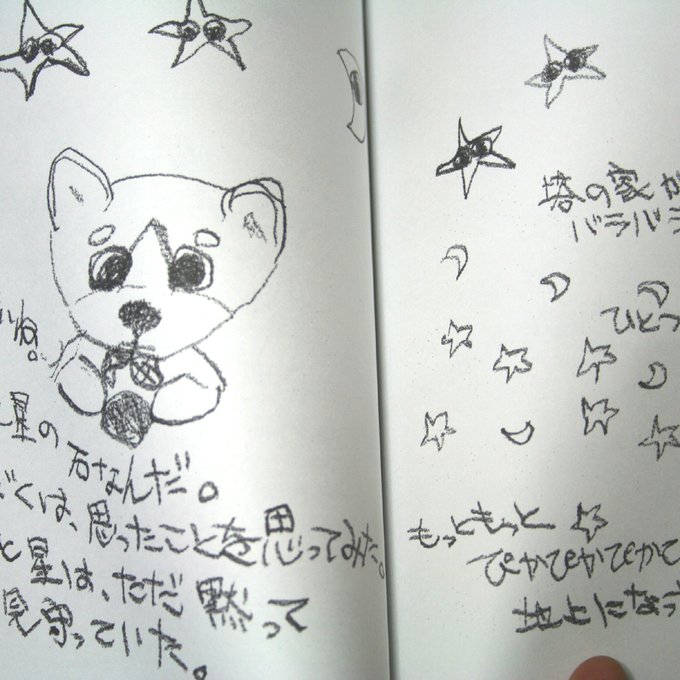 いね。
星の石なんだ。
ぼくは、思ったことを思ってみた。
と星は、ただ黙って
見守っていた。
塔の家が
バラバラ
ひとつ
もっともっと
ぴかぴかぴかて